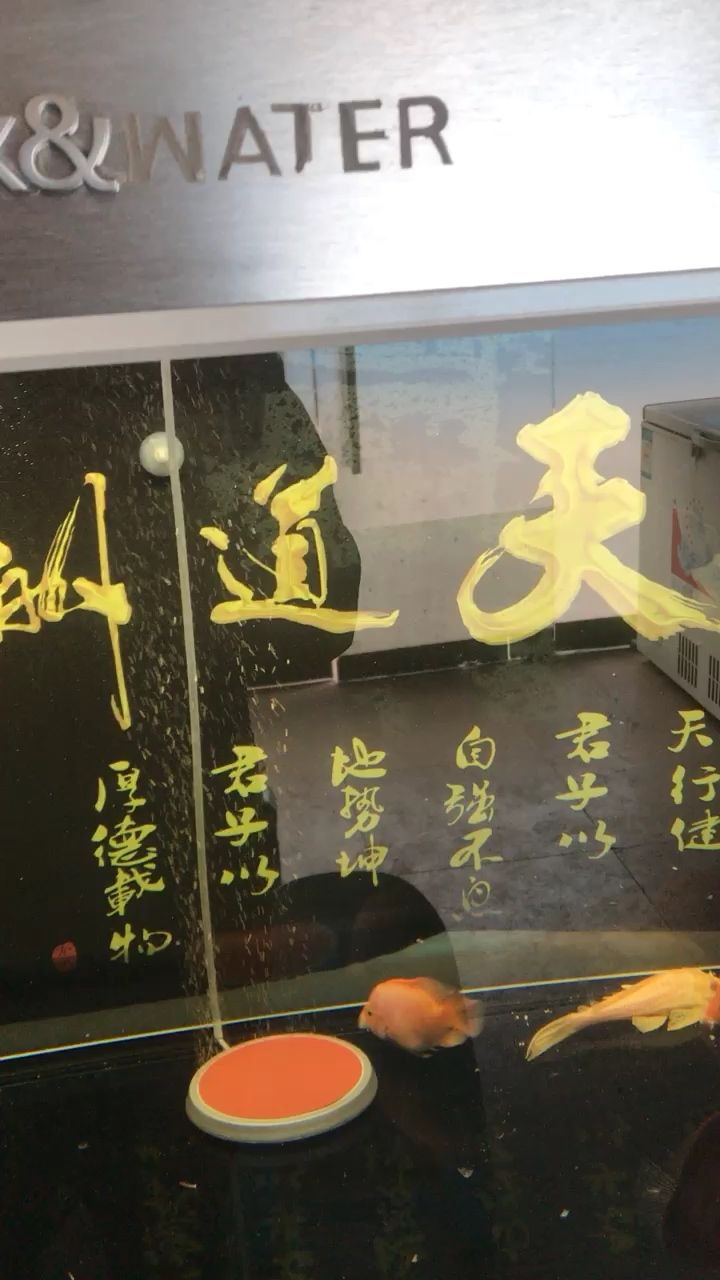 &WATER
天道酬
天行健
君子以
自强不息
地势坤
君子以
厚德載物